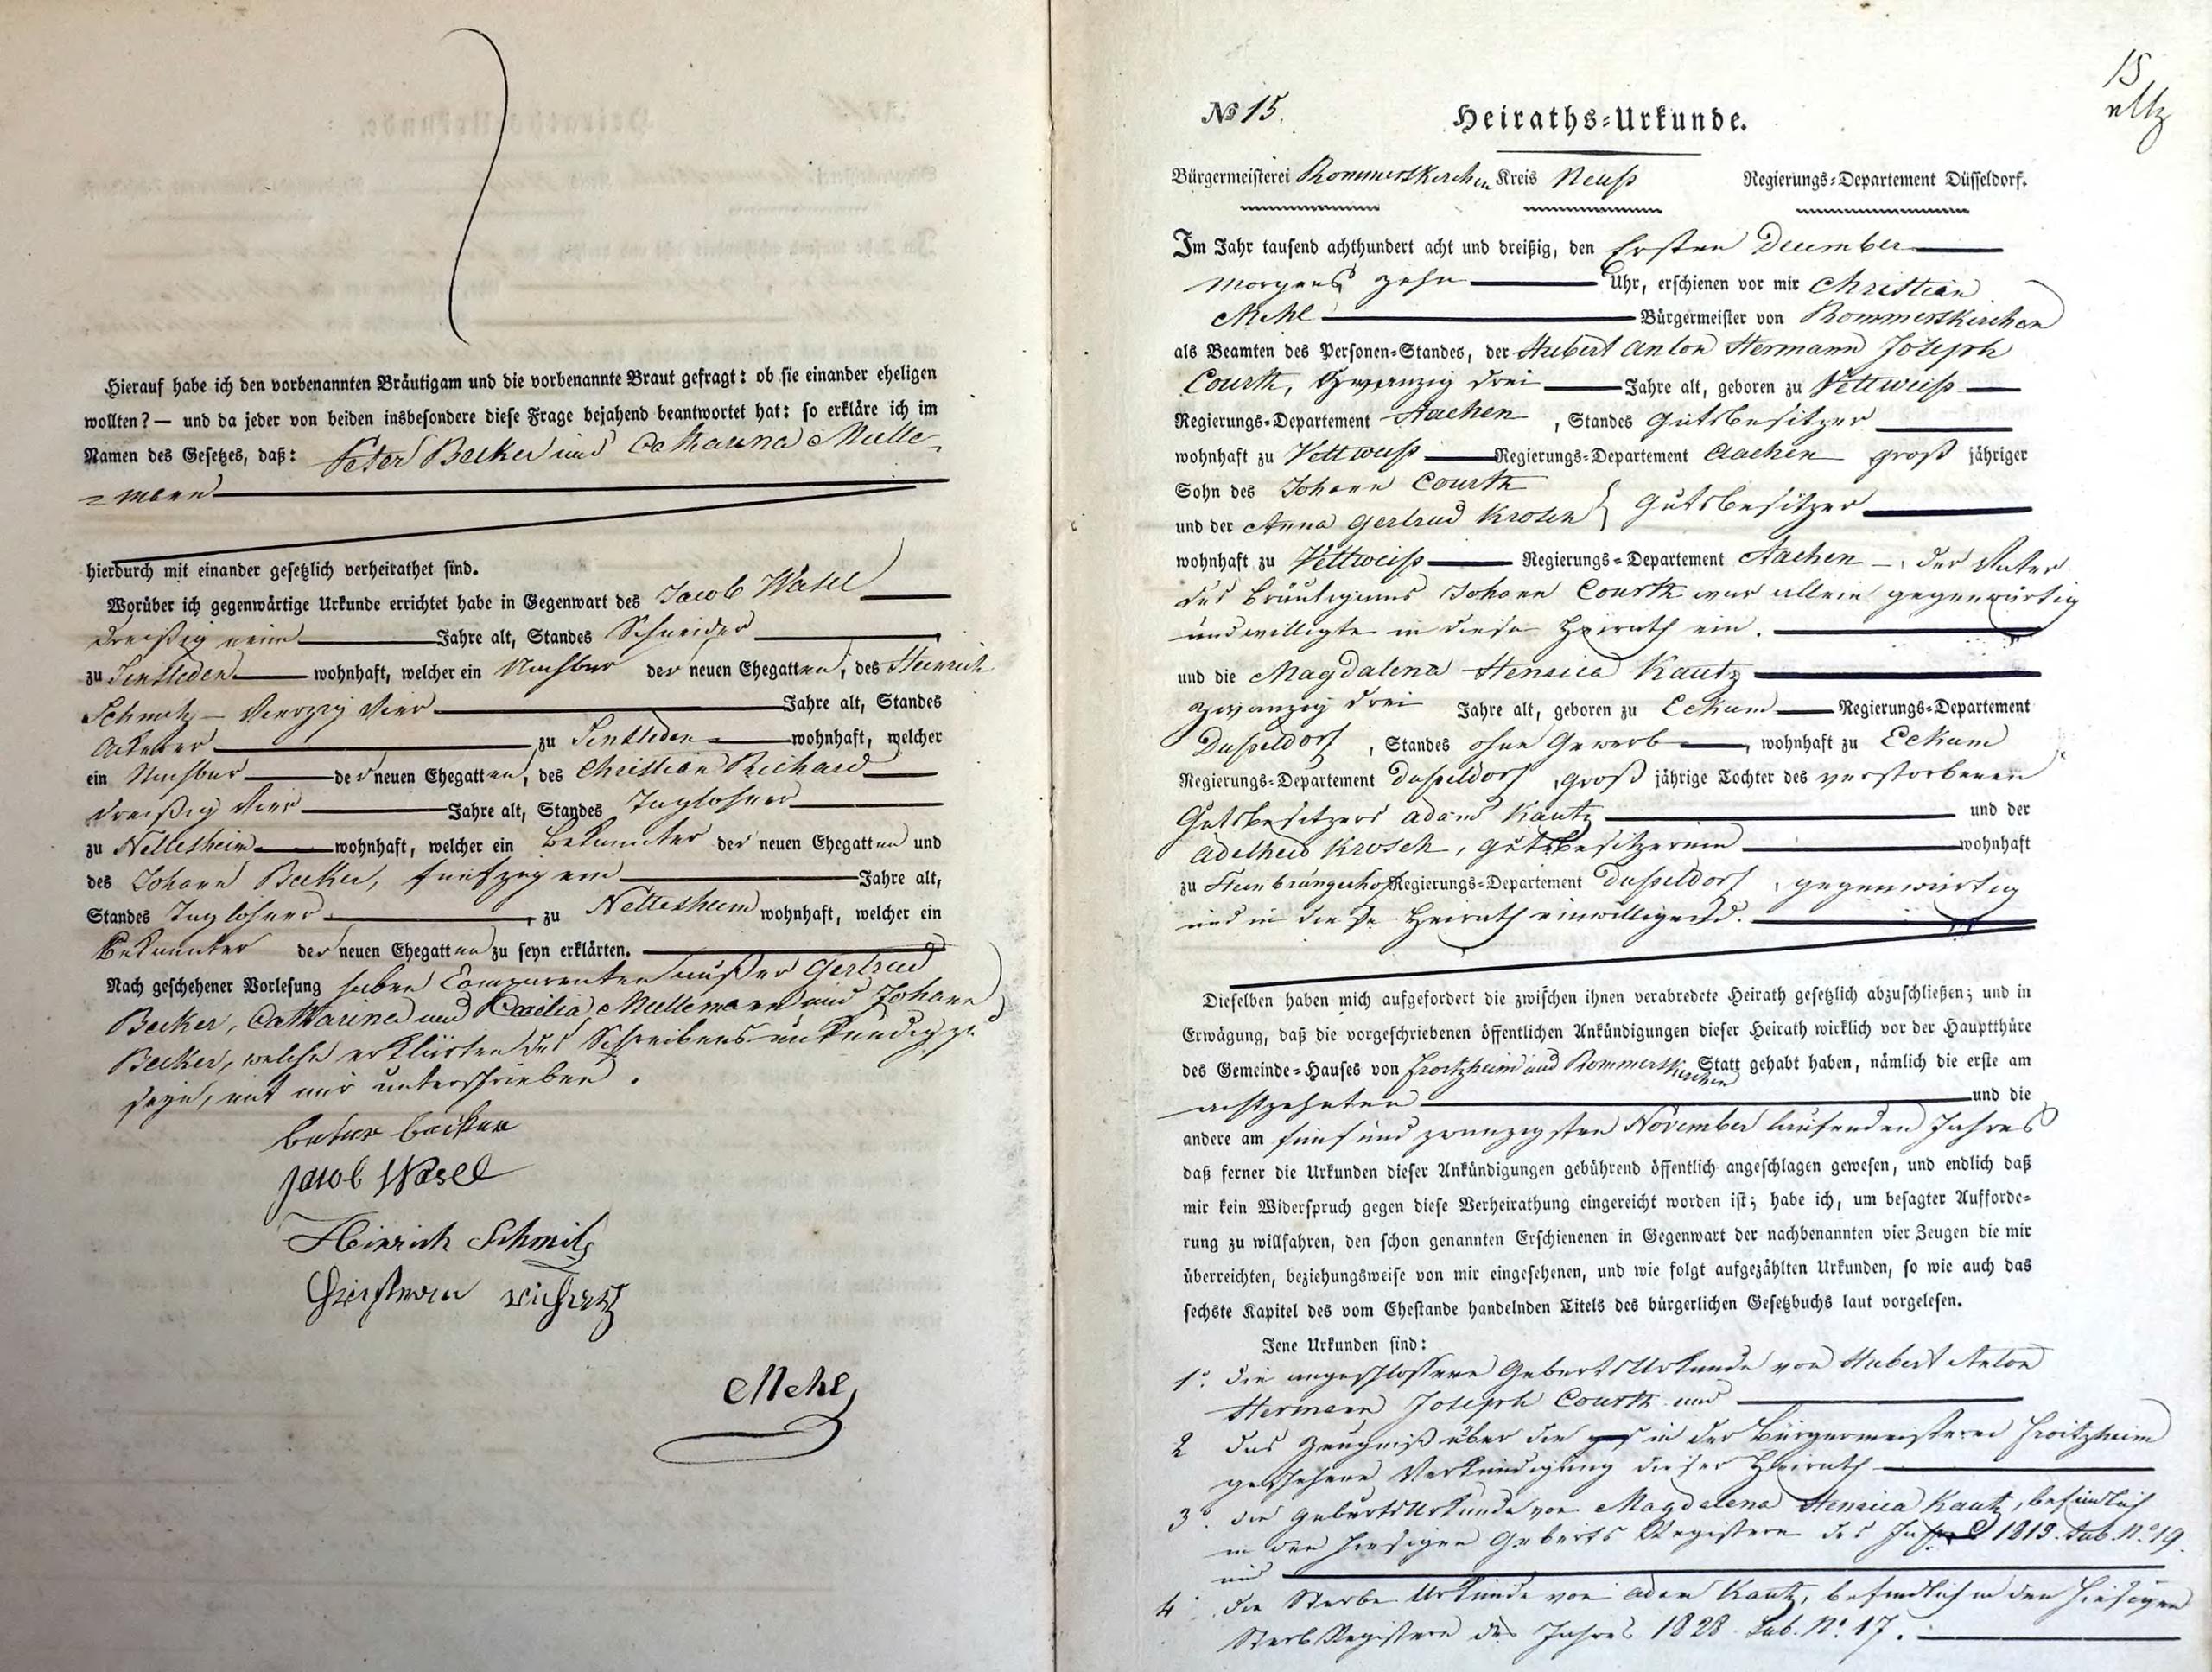 Hierauf habe ich den vorbenannten Bräutigam und die vorbenannte Braut gefragt: ob sie einander eheligen
wollten? — und da jeder von beiden insbesondere diese Frage bejahend beantwortet hat: so erkläre ich im
Namen des Gesetzes, daß: Peter Becker und Catharina Mülle-
=mann
hierdurch mit einander gesetzlich verheirathet sind.
Worüber ich gegenwärtige Urkunde errichtet habe in Gegenwart des Jacob Wasel
dreißig neun Jahre alt, Standes Schneider
zu Sinsteden wohnhaft, welcher ein Nachbar der neuen Ehegatten, des Heinrich
Schmitz — vierzig vier Jahre alt, Standes
Ackerer zu Sinsteden wohnhaft, welcher
ein Nachbar der neuen Ehegatten, des Christian Richard
dreißig vier Jahre alt, Standes Taglöhner
zu Nettesheim wohnhaft, welcher ein Bekannter der neuen Ehegatten und
des Johann Becker, fünfzig ein Jahre alt,
Standes Taglöhner, zu Nettesheim wohnhaft, welcher ein
Bekannter der neuen Ehegatten zu seyn erklärten.
Nach geschehener Vorlesung haben Comparenten außer Gertrud
Becker, Catharina und Caecilia Müllemann und Johann
Becker, welche erklärten des Schreibens unkundig zu
seyn, mit mir unterschrieben.
Jacob Wasel
Heinrich Schmitz
Mehl
15
No 15. Heiraths-Urkunde.
Bürgermeisterei Rommerskirchen Kreis Neuß Regierungs-Departement Düsseldorf.
Im Jahr tausend achthundert acht und dreißig, den Ersten December
Morgens zehn Uhr, erschienen vor mir Christian
Mehl Bürgermeister von Rommerskirchen
als Beamten des Personen-Standes, der Hubert Anton Hermann Joseph
Courth, Zwanzig drei Jahre alt, geboren zu Vettweiß
Regierungs-Departement Aachen, Standes Gutsbesitzer
wohnhaft zu Vettweiß Regierungs-Departement Aachen groß jähriger
Sohn des Johann Courth
und der Anna Gertrud Krosch } Gutsbesitzer
wohnhaft zu Vettweiß Regierungs-Departement Aachen —, der Vater
des Bräutigams Johann Courth war allein gegenwärtig
und willigte in diese Heirath ein.
und die Magdalena Henrica Kautz
zwanzig drei Jahre alt, geboren zu Eckum Regierungs-Departement
Dußeldorf, Standes ohne Gewerb, wohnhaft zu Eckum
Regierungs-Departement Dußeldorf, groß jährige Tochter des verstorbenen
Gutsbesitzers Adam Kautz und der
Adelheid Krosch, Gutsbesitzerinn wohnhaft
zu Steinbrüngerhof Regierungs-Departement Dußeldorf, gegenwärtig
und in diese Heirath einwilligend.
Dieselben haben mich aufgefordert die zwischen ihnen verabredete Heirath gesetzlich abzuschließen; und in
Erwägung, daß die vorgeschriebenen öffentlichen Ankündigungen dieser Heirath wirklich vor der Hauptthüre
des Gemeinde-Hauses von Froitzheim und Rommerskirchen Statt gehabt haben, nämlich die erste am
achtzehnten und die
andere am fünf und zwanzigsten November laufenden Jahres
daß ferner die Urkunden dieser Ankündigungen gebührend öffentlich angeschlagen gewesen, und endlich daß
mir kein Widerspruch gegen diese Verheirathung eingereicht worden ist; habe ich, um besagter Aufforde-
rung zu willfahren, den schon genannten Erschienenen in Gegenwart der nachbenannten vier Zeugen die mir
überreichten, beziehungsweise von mir eingesehenen, und wie folgt aufgezählten Urkunden, so wie auch das
sechste Kapitel des vom Ehestande handelnden Titels des bürgerlichen Gesetzbuchs laut vorgelesen.
Jene Urkunden sind:
1°. die angeschlossene Geburts Urkunde von Hubert Anton
Hermann Joseph Courth und
2 das Zeugniß über die in der Bürgermeisterei Froitzheim
geschehene Verkündigung dieser Heirath
3°. die Geburts Urkunde von Magdalena Henrica Kautz, befindlich
in den hiesigen Geburts Registern des Jahres 1815. Sub. No. 19.
und
4. die Sterbe Urkunde von Adam Kautz, befindlich in den hiesigen
Sterb Registern des Jahres 1828 Sub. No. 17.